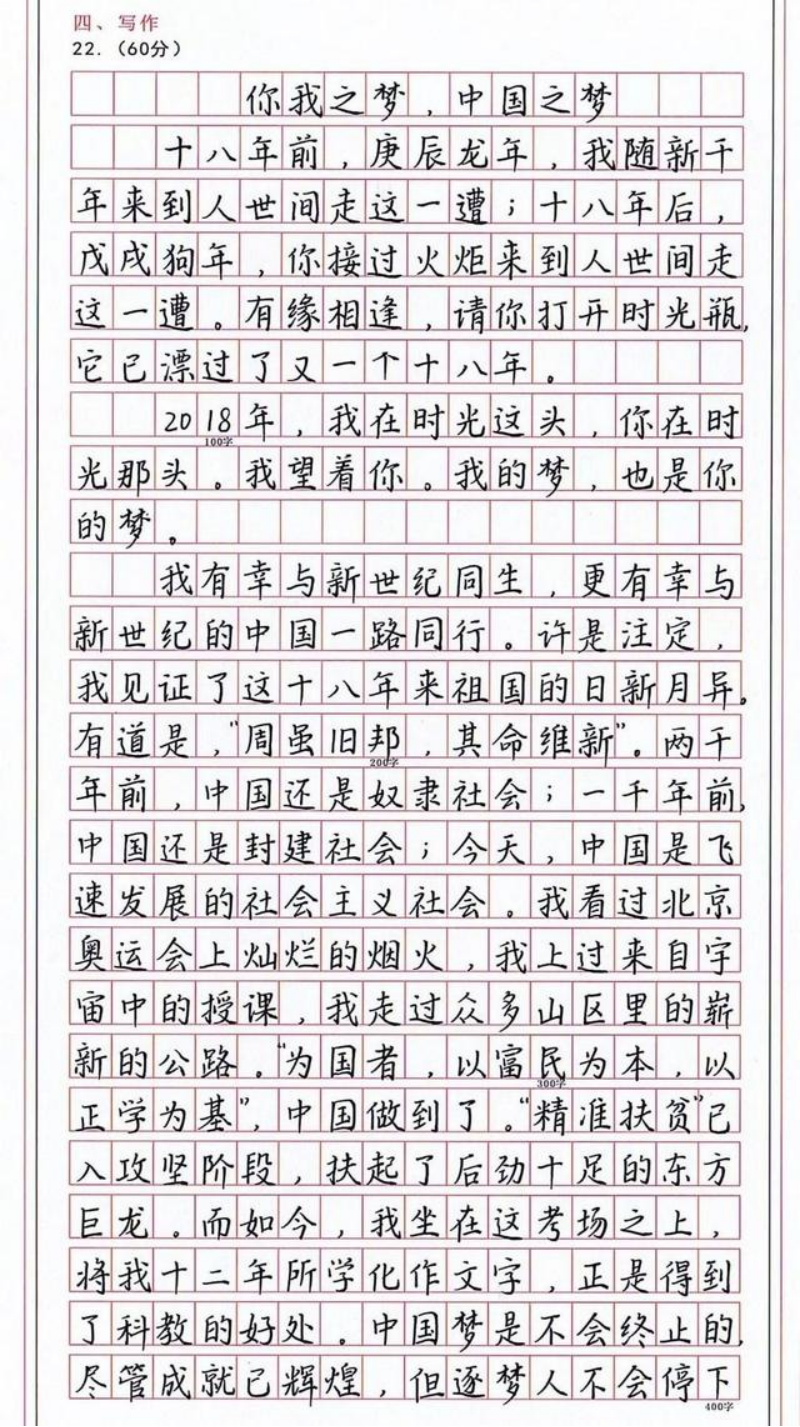 四、写作
22.（60分）
你我之梦，中国之梦
十八年前，庚辰龙年，我随新千
年来到人世间走这一遭；十八年后，
戊戌狗年，你接过火炬来到人世间走
这一遭。有缘相逢，请你打开时光瓶，
它已漂过了又一个十八年。
2018年，我在时光这头，你在时
100字
光那头。我望着你。我的梦，也是你
的梦。
我有幸与新世纪同生，更有幸与
新世纪的中国一路同行。许是注定，
我见证了这十八年来祖国的日新月异。
有道是，“周虽旧邦，其命维新”。两千
200字
年前，中国还是奴隶社会；一千年前，
中国还是封建社会；今天，中国是飞
速发展的社会主义社会。我看过北京
奥运会上灿烂的烟火，我上过来自宇
宙中的授课，我走过众多山区里的崭
新的公路。“为国者，以富民为本，以
300字
正学为基”，中国做到了。“精准扶贫”已
入攻坚阶段，扶起了后劲十足的东方
巨龙。而如今，我坐在这考场之上，
将我十二年所学化作文字，正是得到
了科教的好处。中国梦是不会终止的，
尽管成就已辉煌，但逐梦人不会停下
400字